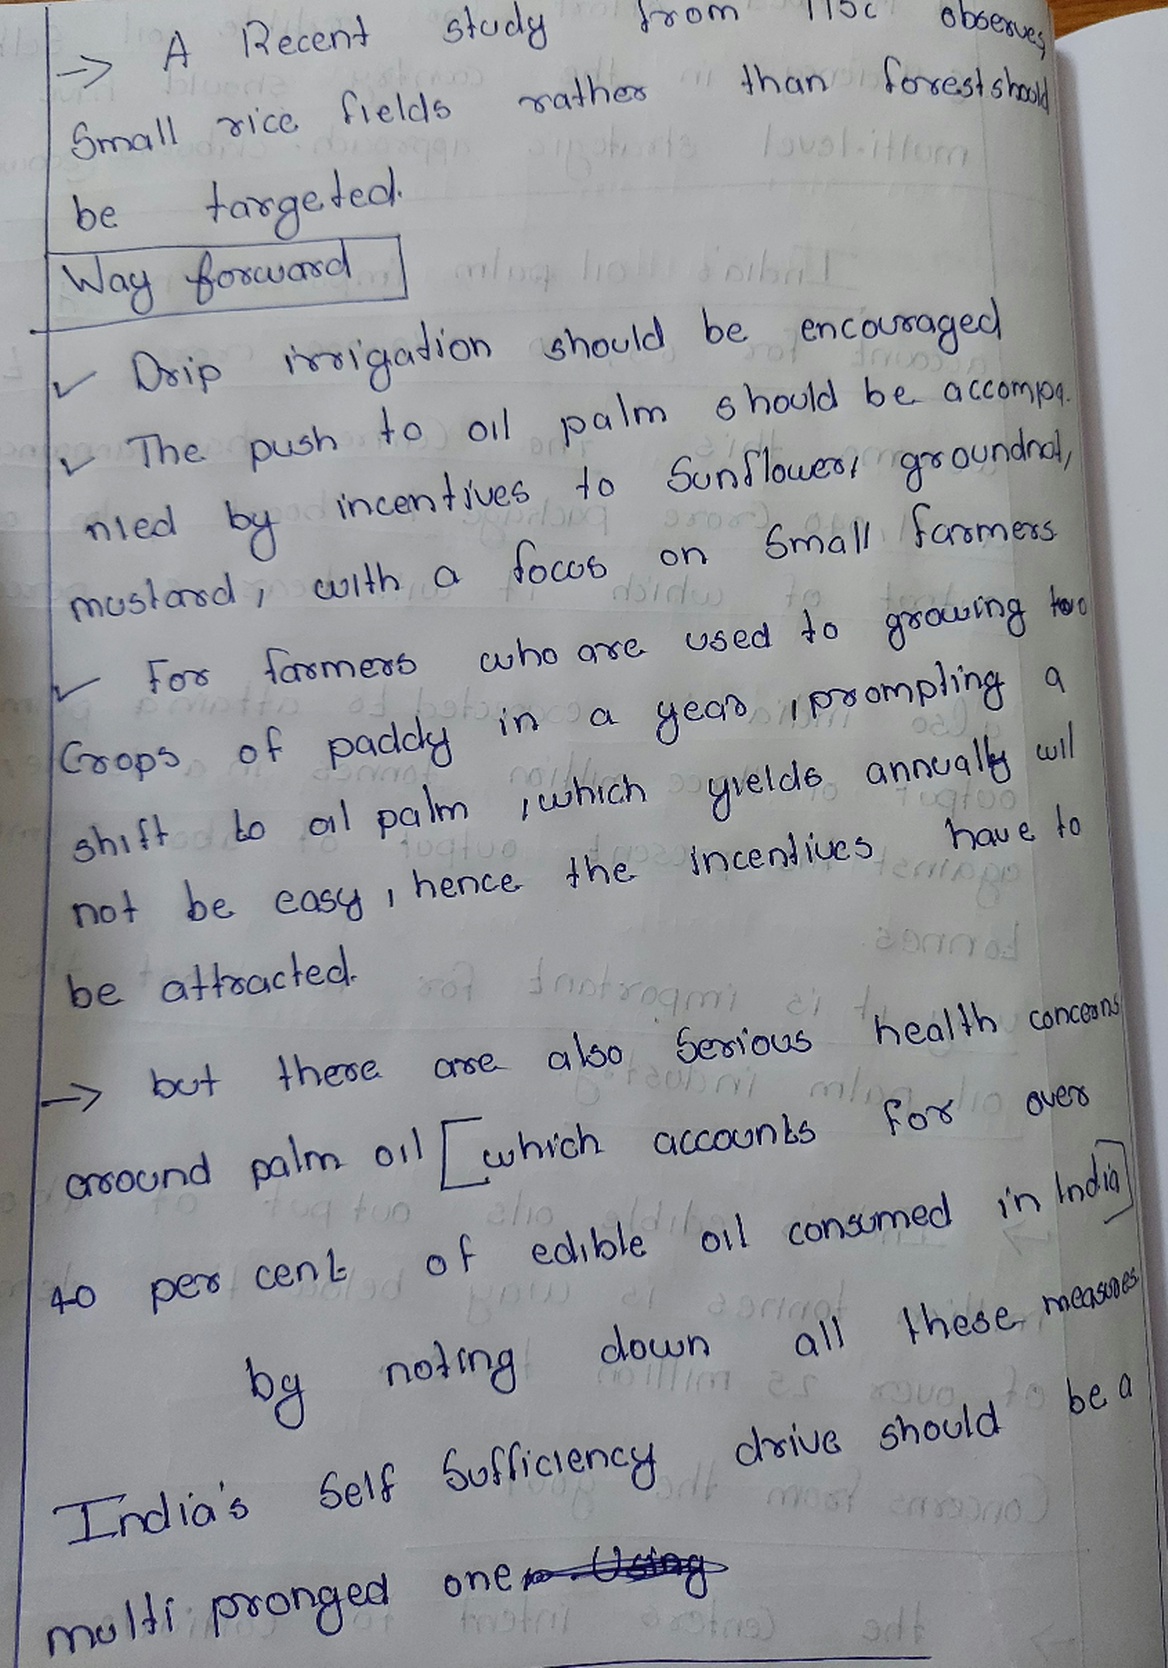 → A Recent study from IISc observes
Small rice fields rather than forest should
be targeted.
Way forward
✓ Drip irrigation should be encouraged
✓ The push to oil palm should be accompa-
nied by incentives to Sunflower, groundnut,
mustard, with a focus on Small farmers
✓ For farmers who are used to growing two
Crops of paddy in a year, prompting a
shift to oil palm, which yields annually will
not be easy, hence the incentives have to
be attracted.
→ but there are also Serious health concerns
around palm oil [which accounts for over
40 per cent of edible oil consumed in India]
by noting down all these measures
India's Self Sufficiency drive should be a
multi pronged one